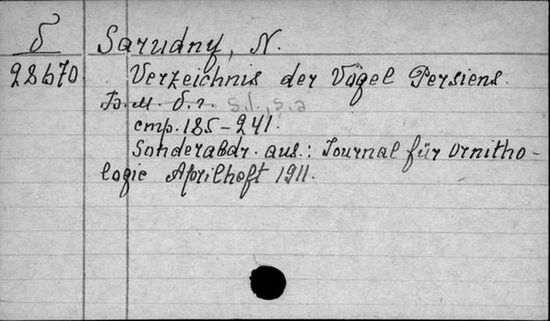 б Sarudny, N.
28670 Verzeichnis der Vögel Persiens.
Б.м. б.г. s.l., s.a
стр. 185-241.
Sonderabdr. aus.: Journal für Ornitho-
logie Aprilheft 1911.